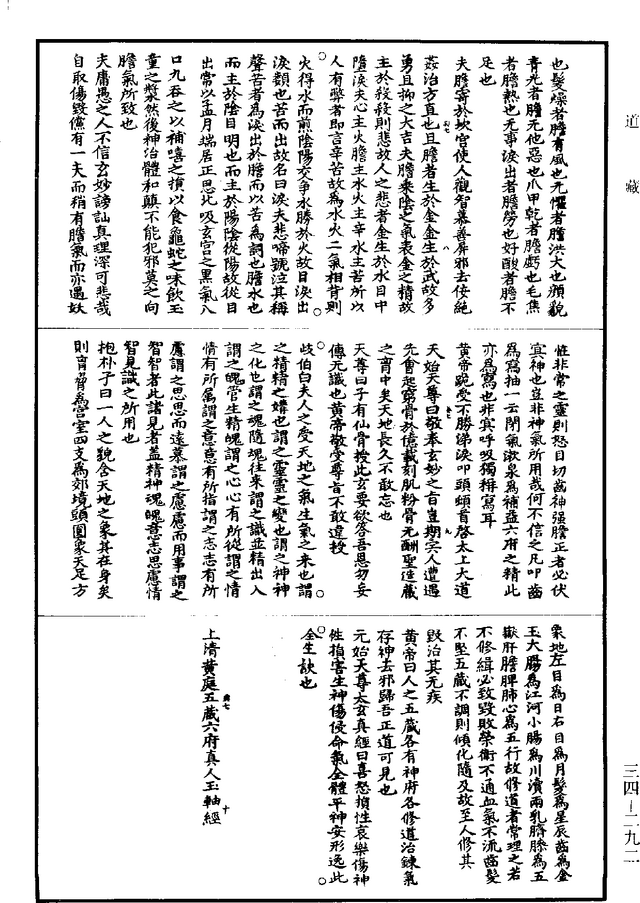 道藏
也髮燥者膽有風也无懼者膽洪大也顏貌
青光者膽无他惡也爪甲乾者膽虧也毛焦
者膽熱也无事淚出者膽勞也好酸者膽不
足也
夫膽寄於坎宮使人觀智慕善屏邪去佞絕
姦治方直也且膽者生於金金生於武故多
勇且抑之大吉夫膽乘陰之氣表金之精故
主於殺殺則悲故人之悲者金生於水目中
墮淚夫心主火膽主水火主辛水主苦所以
人有弊者即言辛苦故為水火二氣相背則
火得水而煎陰陽交爭水勝於火故目淚出
淚顴也苦而出故名曰淚夫悲啼號泣其稱
聲苦者為淚出於膽而以苦為詞也膽水也
而主於陰目明也而主於陽陰從陽故從目
出常以孟月端居正思北吸玄宮之黑氣入
口九吞之以補嘻之損以食龜蛇之味飲玉
童之漿然後神治體和顛不能犯邪莫之向
膽氣所致也
夫庸愚之人不信玄妙謗訕真理深可悲哉
自取傷毀儻有一夫而稍有膽氣而亦遇妖
怪非常之靈則怒目切齒神強膽正者必伏
冥神也豈非神氣所用哉何不信之凡叩齒
為寫抽一云閉氣漱泉為補益六府之精此
亦為寫也非宾呼吸獨釋寫耳
黃帝跪受不勝涕淚叩頭蛂首啓太上大道
天始天尊曰敬奉玄妙之旨豈期宾人遭遇
先會起窮骨於億載刻肌粉骨无酬聖造藏
之育中矣天地長久不敢忘也
天尊曰子有仙骨授此玄要欲答吾恩勿妄
傳元識也黃帝敬受尊旨不敢違授
歧伯曰夫人之受天地之氣生氣之來也謂
之精精之媾也謂之靈靈之變也謂之神神
之化也謂之魂隨魂往來謂之識並精出入
謂之魄管生精魄謂之心心有所從謂之情
情有所屬謂之意意有所指謂之志志有所
慮謂之思思而遠慕謂之慮慮而用事謂之
智智者此諸見者盖精神魂魄意志思慮情
智見識之所用也
抱朴子曰一人之貌含天地之象其在身矣
則肓智為宮室四支為郊境頭圓象天足方
象地左目為日右目為月髮為星辰齒為金
玉大腸為江河小腸為川瀆兩乳臍膝為五
嶽肝膽脾肺心為五行故修道者常理之若
不修緝必致毀敗榮衛不通血氣不流齒髮
不堅五藏不調則傾化隨及故至人修其
毀治其无疾
黃帝曰人之五藏各有神府各修道治鍊氣
存神去邪歸吾正道可見也
元始天尊太玄真經曰喜怒損性哀樂傷神
性損害生神傷侵命氣全體平神安形逸此
全生訣也
上清黃庭五藏六府真人玉軸經
三四－二九二